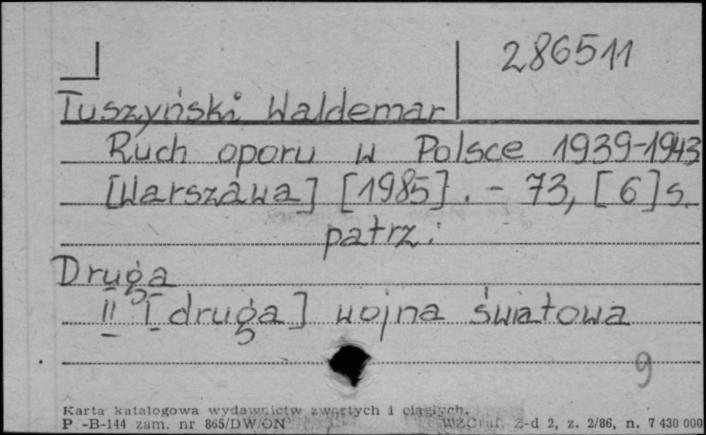 286511
Tuszyński Waldemar
Ruch oporu w Polsce 1939-1943
[Warszawa] [1985]. - 73, [6] s.
patrz:
Druga
II [druga] wojna światowa
9
Karta katalogowa wydawnictw zwartych i ciągłych.
P -B-144 zam. nr 865/DW/ON
Z-d 2, z. 2/86, n. 7 430 000